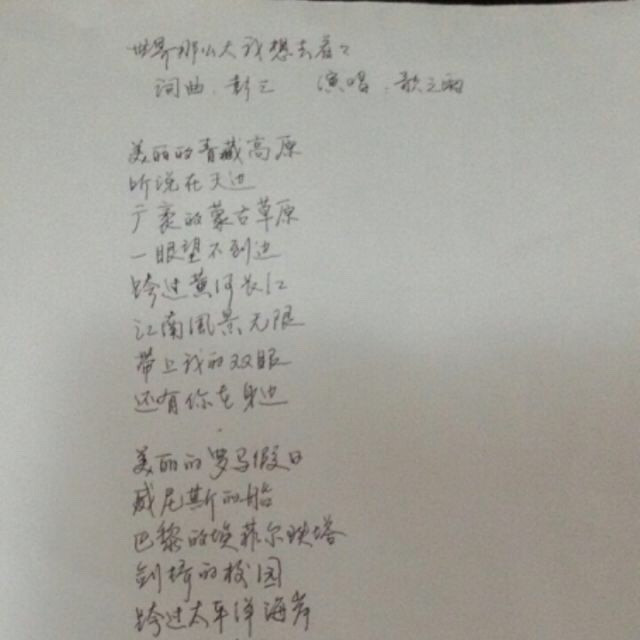 世界那么大我想去看看
词曲：彭三 演唱：歌之雨
美丽的青藏高原
听说在天边
广袤的蒙古草原
一眼望不到边
跨过黄河长江
江南风景无限
带上我的双眼
还有你在身边
美丽的罗马假日
威尼斯的船
巴黎的埃菲尔铁塔
剑桥的校园
跨过太平洋海岸